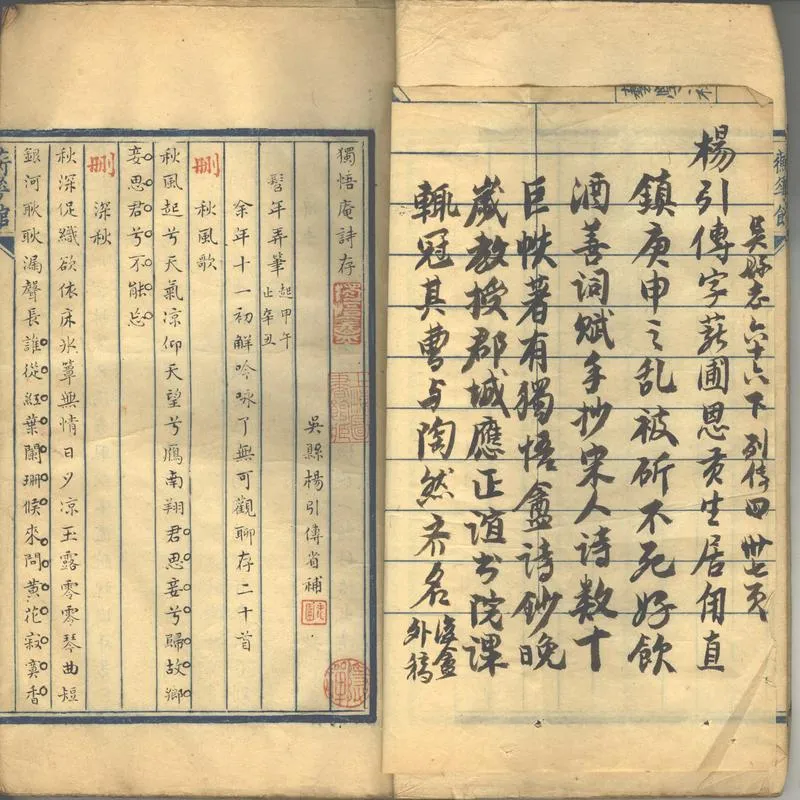 吳縣志六十六下 列傳四 卅七頁
楊引傳字薪圃恩貢生居甪直
鎮庚申之乱被斫不死好飲
酒善詞賦手抄宋人詩数十
巨帙著有獨悟盦詩鈔晚
歲教授郡城應正誼书院課
輒冠其曹与陶然齐名
外稿
獨悟庵詩存
吳縣楊引傳省補
髫年弄筆 起甲午
止辛丑
余年十一初解吟咏了無可觀聊存二十首
刪 秋風歌
秋風起兮天氣凉仰天望兮鴈南翔君思妾兮歸故鄉
妾思君兮不能忘
刪 深秋
秋深促織欲依床氷簟無情日夕凉玉露零零琴曲短
銀河耿耿漏聲長誰從紅葉闌珊候來問黄花寂寞香